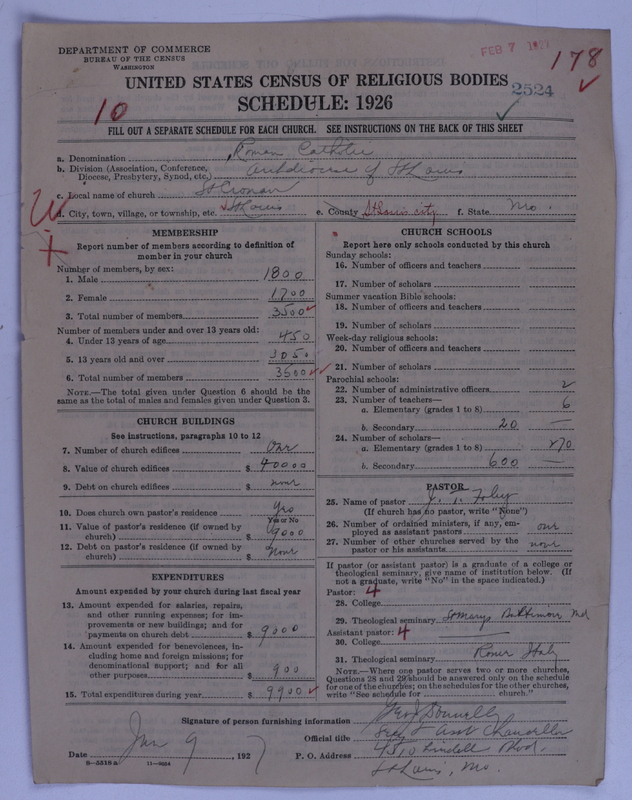 DEPARTMENT OF COMMERCE
BUREAU OF THE CENSUS
WASHINGTON
FEB 7 1927
178
UNITED STATES CENSUS OF RELIGIOUS BODIES
2524
SCHEDULE: 1926
10
FILL OUT A SEPARATE SCHEDULE FOR EACH CHURCH. SEE INSTRUCTIONS ON THE BACK OF THIS SHEET
a. Denomination Roman Catholic
b. Division (Association, Conference, Diocese, Presbytery, Synod, etc.) Archdiocese of St Louis
c. Local name of church St Cronan
d. City, town, village, or township, etc. St Louis e. County St Louis city f. State Mo.
MEMBERSHIP
Report number of members according to definition of member in your church
Number of members, by sex:
1. Male 1800
2. Female 1700
3. Total number of members 3500
Number of members under and over 13 years old:
4. Under 13 years of age 450
5. 13 years old and over 3050
6. Total number of members 3500
NOTE.—The total given under Question 6 should be the same as the total of males and females given under Question 3.
CHURCH BUILDINGS
See instructions, paragraphs 10 to 12
7. Number of church edifices One
8. Value of church edifices $ 40000
9. Debt on church edifices $ none
10. Does church own pastor's residence Yes
Yes or No
11. Value of pastor's residence (if owned by church) $ 9000
12. Debt on pastor's residence (if owned by church) $ none
EXPENDITURES
Amount expended by your church during last fiscal year
13. Amount expended for salaries, repairs, and other running expenses; for improvements or new buildings; and for payments on church debt $ 9000
14. Amount expended for benevolences, including home and foreign missions; for denominational support; and for all other purposes $ 900
15. Total expenditures during year $ 9900
CHURCH SCHOOLS
Report here only schools conducted by this church
Sunday schools:
16. Number of officers and teachers
17. Number of scholars
Summer vacation Bible schools:
18. Number of officers and teachers
19. Number of scholars
Week-day religious schools:
20. Number of officers and teachers
21. Number of scholars
Parochial schools:
22. Number of administrative officers 2
23. Number of teachers—
a. Elementary (grades 1 to 8) 6
b. Secondary 20 —
24. Number of scholars—
a. Elementary (grades 1 to 8) 270
b. Secondary 600 —
PASTOR
25. Name of pastor J. T. Foley
(If church has no pastor, write "None")
26. Number of ordained ministers, if any, employed as assistant pastors one
27. Number of other churches served by the pastor or his assistants none
If pastor (or assistant pastor) is a graduate of a college or theological seminary, give name of institution below. (If not a graduate, write "No" in the space indicated.)
Pastor: 4
28. College
29. Theological seminary St Marys Baltimore Md
Assistant pastor: 4
30. College
31. Theological seminary Rome Italy
NOTE.—Where one pastor serves two or more churches, Questions 28 and 29 should be answered only on the schedule for one of the churches; on the schedules for the other churches, write "See schedule for church."
Signature of person furnishing information Geo J Donnelly
Official title Secy & Asst Chancellor
Date Jan 9 1927 P. O. Address 4510 Lindell Blvd.
St Louis, Mo.